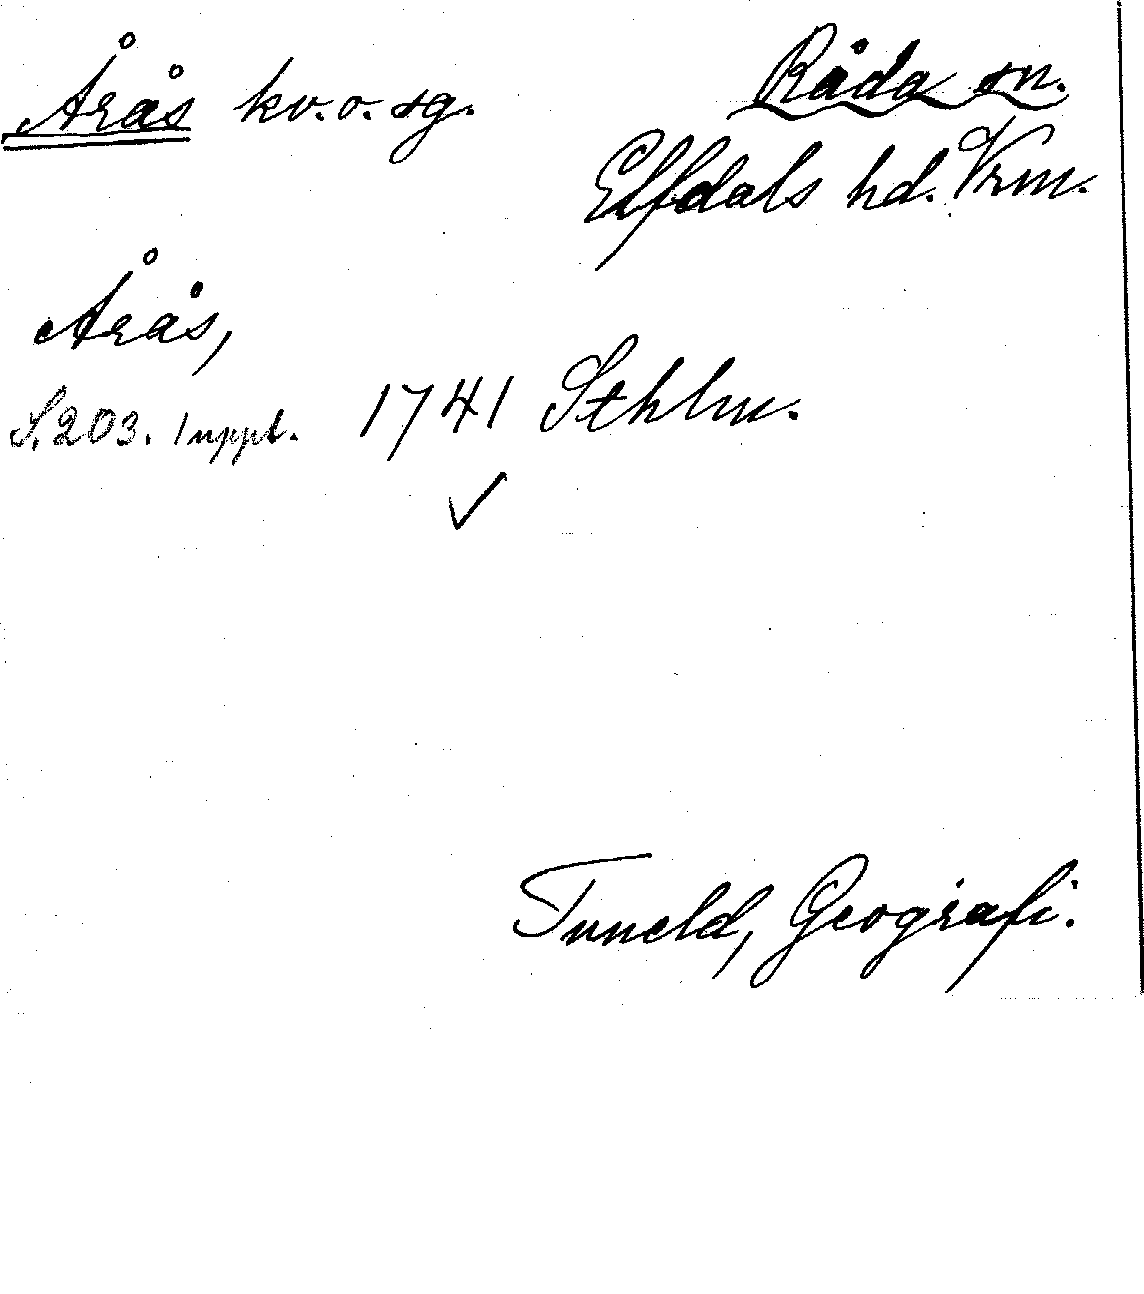 Årås kv. o. sg. Råda sn.
Elfdals hd. Vrm.
Årås,
S. 203. 1 uppl. 1741 Sthlm.
✓
Tuneld, Geografi.